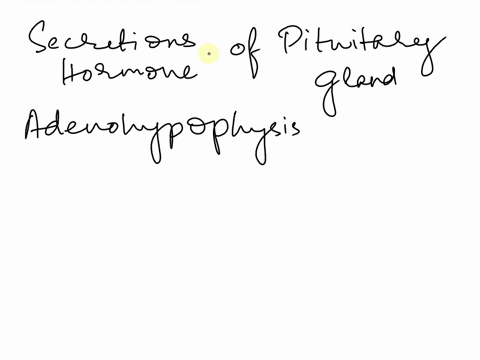 Secretions of Pituitary
Hormone gland
Adenohypophysis